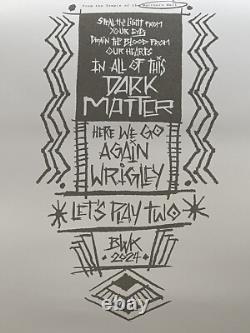 From the Temple of the Northern Hall
STEAL THE LIGHT FROM
YOUR EYES
DRAIN THE BLOOD FROM
OUR HEARTS
IN ALL OF THIS
DARK
MATTER
HERE WE GO
AGAIN
WRIGLEY
LET'S PLAY TWO
BWK
2024